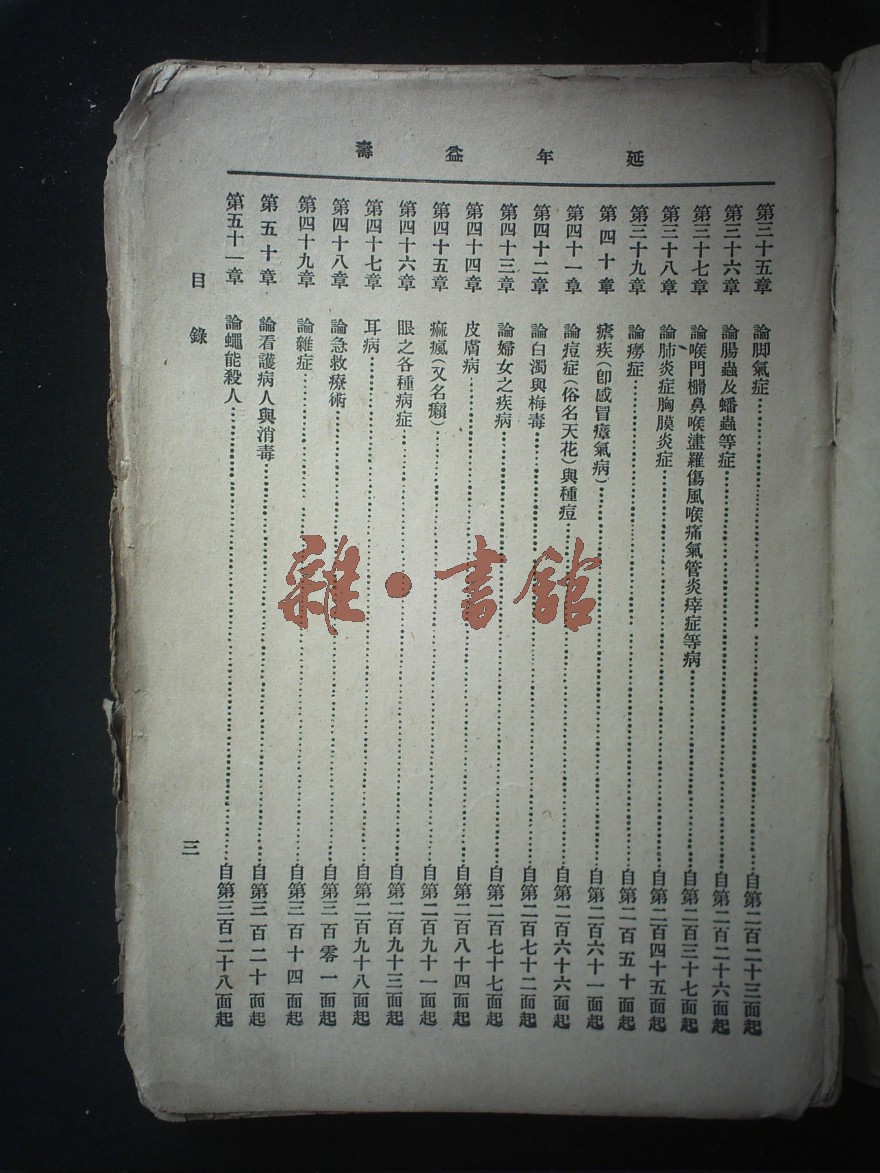 延年益壽
第三十五章 論脚氣症…自第二百二十三面起
第三十六章 論腸蟲及蟠蟲等症…自第二百二十六面起
第三十七章 論喉門櫊鼻喉𧗾羅傷風喉痛氣管炎痒症等病…自第二百三十七面起
第三十八章 論肺炎症胸膜炎症…自第二百四十五面起
第三十九章 論癆症…自第二百五十面起
第四十章 瘧疾(卽感冒瘴氣病)…自第二百六十一面起
第四十一章 論痘症(俗名天花)與種痘…自第二百六十六面起
第四十二章 論白濁與梅毒…自第二百七十二面起
第四十三章 論婦女之疾病…自第二百七十七面起
第四十四章 皮膚病…自第二百八十四面起
第四十五章 痲瘋(又名癩)…自第二百九十一面起
第四十六章 眼之各種病症…自第二百九十三面起
第四十七章 耳病…自第二百九十八面起
第四十八章 論急救療術…自第三百零一面起
第四十九章 論雜症…自第三百十四面起
第五十章 論看護病人與消毒…自第三百二十面起
第五十一章 論蠅能殺人…自第三百二十八面起
目錄 三
雜·書館